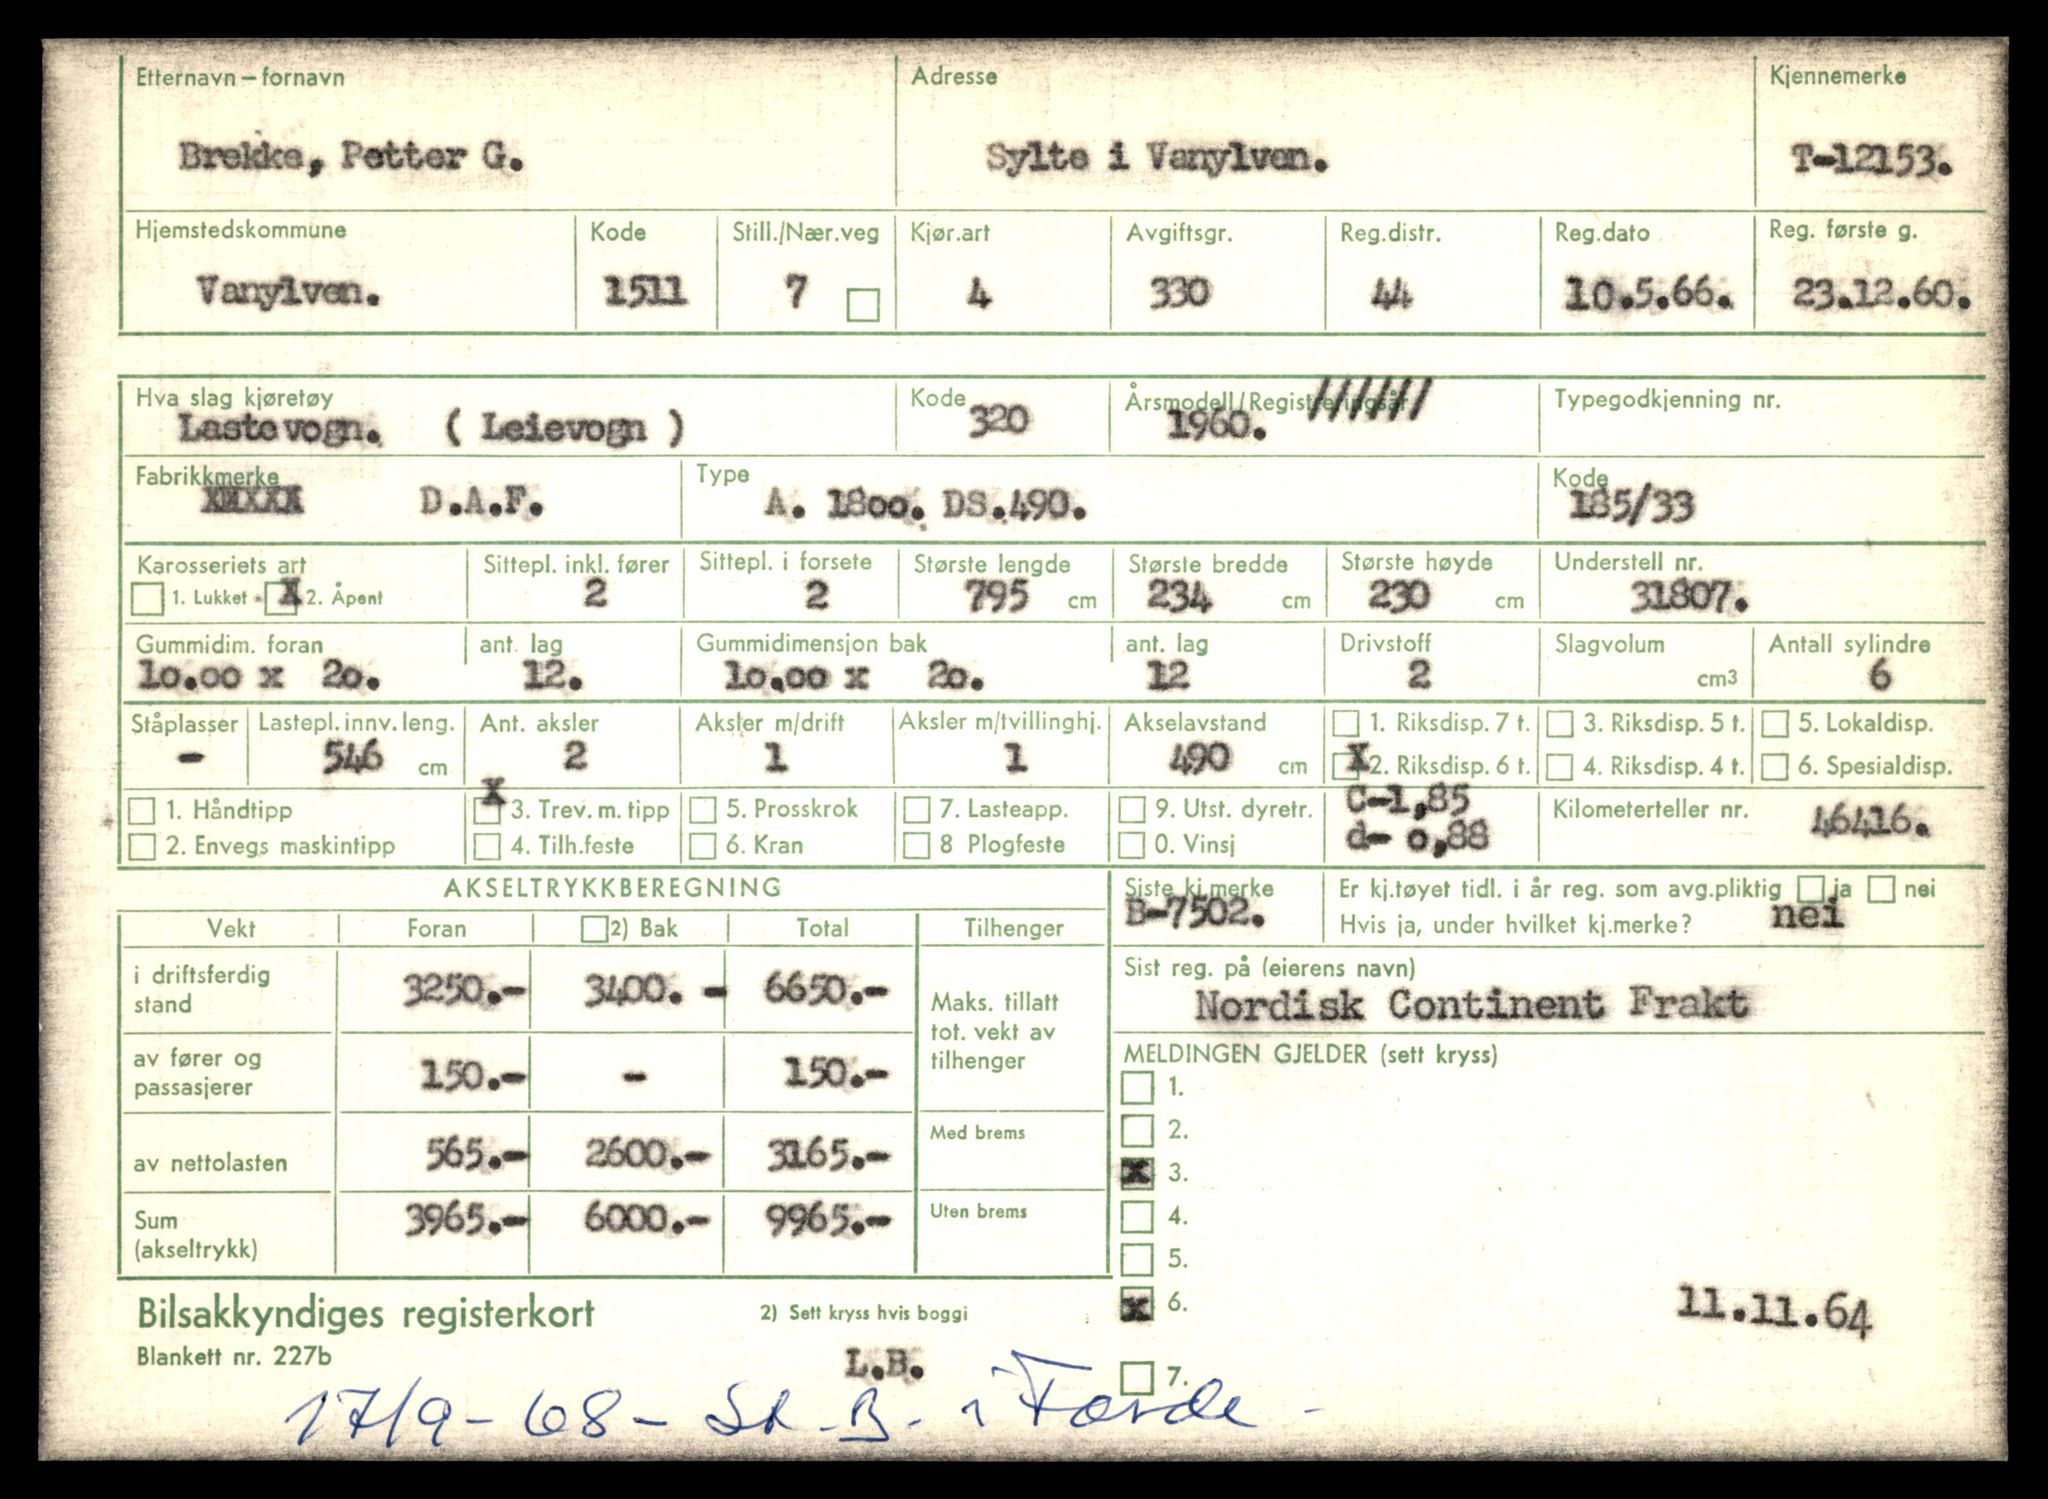 Etternavn – fornavn Adresse Kjennemerke
Brekke, Petter G. Sylte i Vanylven. T-12153.
Hjemstedskommune Kode Still./Nær.veg Kjør.art Avgiftsgr. Reg.distr. Reg.dato Reg. første g.
Vanylven. 1511 7 4 330 44 10.5.66. 23.12.60.
Hva slag kjøretøy Kode Årsmodell/Registreringsår Typegodkjenning nr.
Lastevogn. ( Leievogn ) 320 1960. //////
Fabrikkmerke Type Kode
D.A.F. A. 18oo. DS.490. 185/33
Karosseriets art Sittepl. inkl. fører Sittepl. i forsete Største lengde Største bredde Største høyde Understell nr.
1. Lukket X 2. Åpent 2 2 795 cm 234 cm 230 cm 31807.
Gummidim. foran ant. lag Gummidimensjon bak ant. lag Drivstoff Slagvolum Antall sylindre
10.00 x 20. 12. 10.00 x 20. 12 2 cm3 6
Ståplasser Lastepl. innv. leng. Ant. aksler Aksler m/drift Aksler m/tvillinghj. Akselavstand 1. Riksdisp. 7 t. 3. Riksdisp. 5 t. 5. Lokaldisp.
- 546 cm 2 1 1 490 cm X 2. Riksdisp. 6 t. 4. Riksdisp. 4 t. 6. Spesialdisp.
1. Håndtipp X 3. Trev. m. tipp 5. Prosskrok 7. Lasteapp. 9. Utst. dyretr. C-1,85 Kilometerteller nr. 46416.
2. Envegs maskintipp 4. Tilh.feste 6. Kran 8 Plogfeste 0. Vinsj d- 0,88
AKSELTRYKKBEREGNING Siste kj.merke Er kj.tøyet tidl. i år reg. som avg.pliktig ja nei
B-7502. Hvis ja, under hvilket kj.merke? nei
Vekt Foran 2) Bak Total Tilhenger
i driftsferdig stand 3250.- 3400. - 6650.- Maks. tillatt tot. vekt av tilhenger
Sist reg. på (eierens navn)
Nordisk Continent Frakt
av fører og passasjerer 150.- - 150.-
MELDINGEN GJELDER (sett kryss)
1.
2.
av nettolasten 565.- 2600.- 3165.- Med brems
x 3.
Sum (akseltrykk) 3965.- 6000.- 9965.- Uten brems
4.
5.
x 6. 11.11.64
Bilsakkyndiges registerkort 2) Sett kryss hvis boggi
Blankett nr. 227b L.B.
7.
17/9-68- St. B. i Førde -